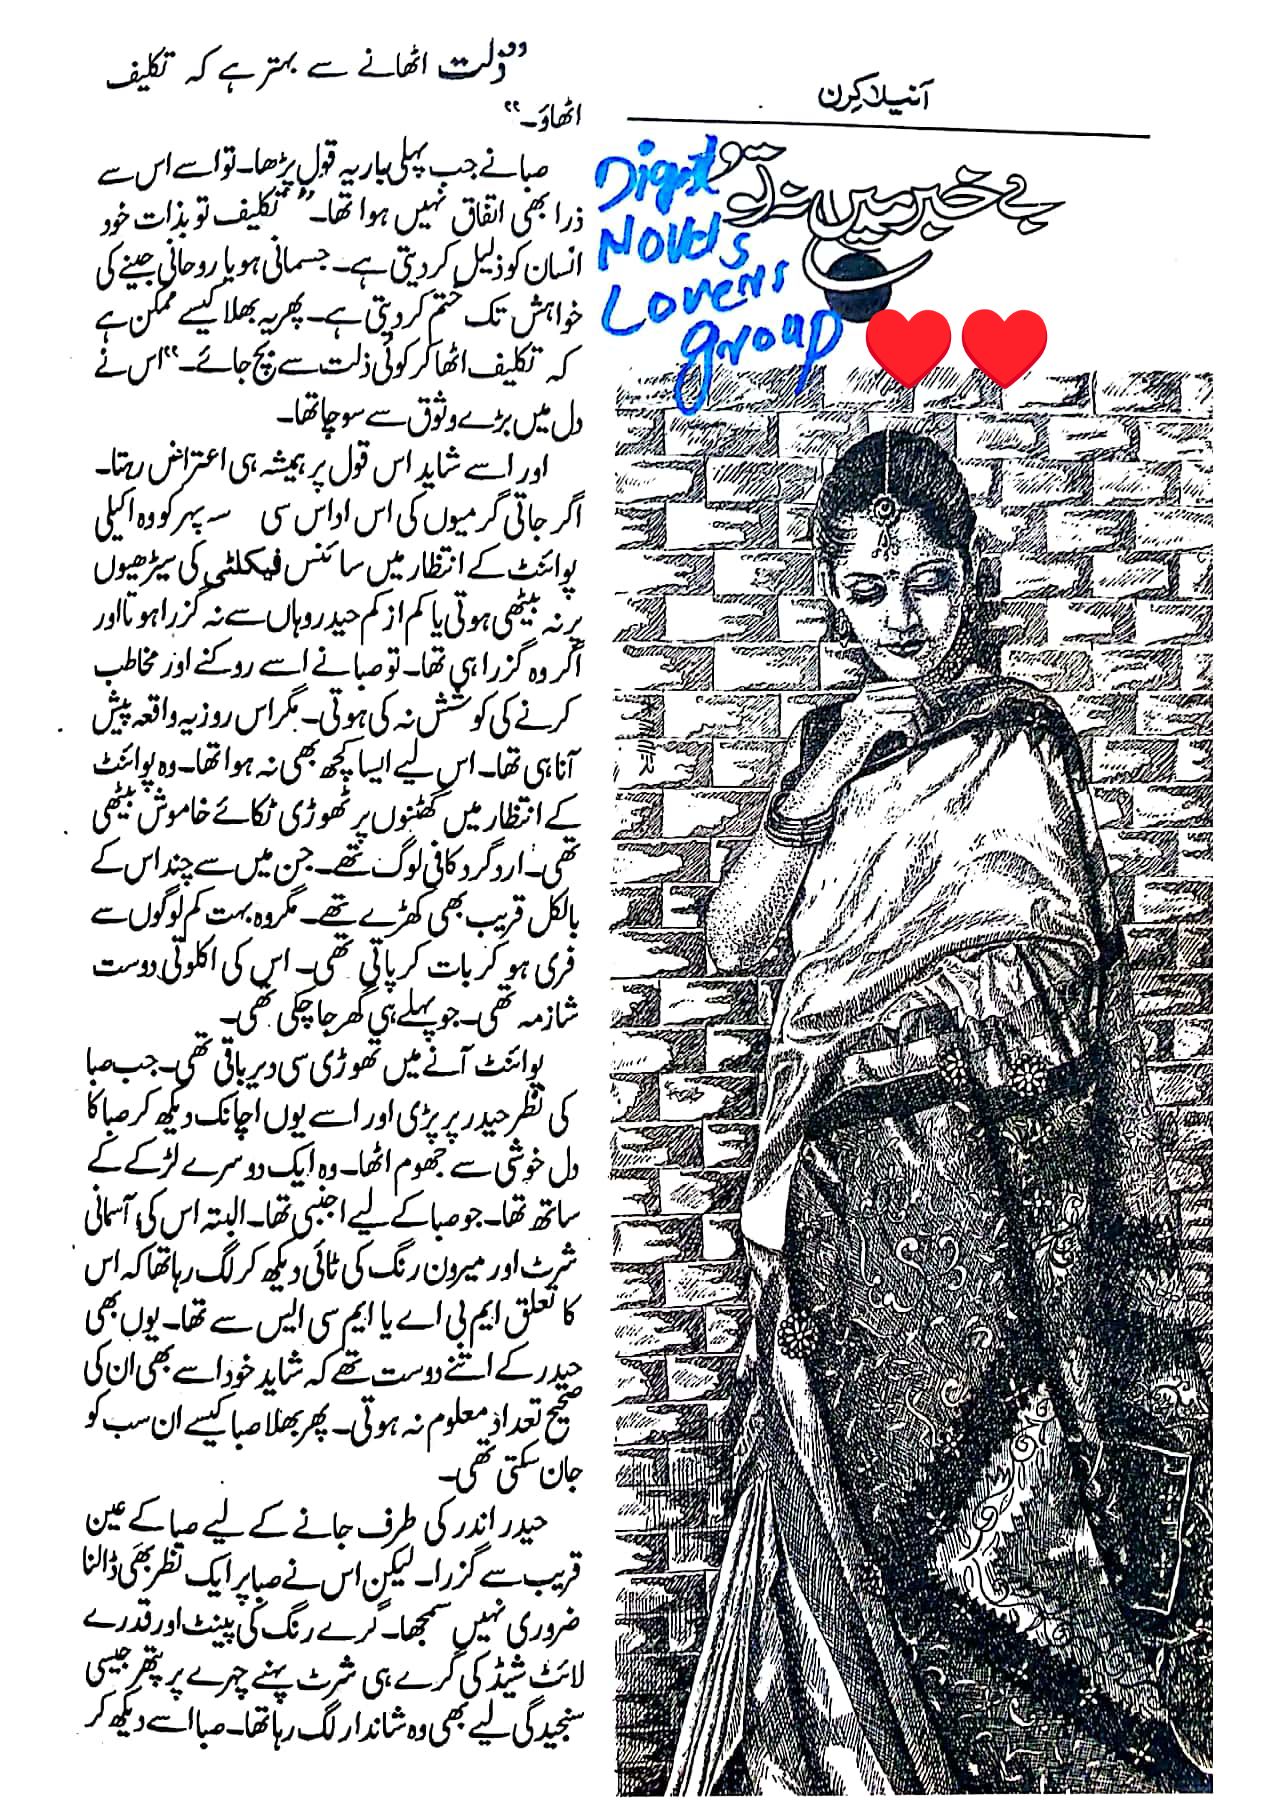 آنیلا کرن
بے خبر میں نہ تو
Digest
Novels
Lovers
group
”ذلت اٹھانے سے بہتر ہے کہ تکلیف
اٹھاؤ۔“
صبا نے جب پہلی بار یہ قول پڑھا۔ تو اسے اس سے
ذرا بھی اتفاق نہیں ہوا تھا۔ ”تکلیف تو بذات خود
انسان کو ذلیل کر دیتی ہے۔ جسمانی ہو یا روحانی جینے کی
خواہش تک ختم کر دیتی ہے۔ پھر یہ بھلا کیسے ممکن ہے
کہ تکلیف اٹھا کر کوئی ذلت سے بچ جائے۔“ اس نے
دل میں بڑے وثوق سے سوچا تھا۔
اور اسے شاید اس قول پر ہمیشہ ہی اعتراض رہتا۔
اگر جاتی گرمیوں کی اس اداس سی سہ پہر کو وہ اکیلی
پوائنٹ کے انتظار میں سائنس فیکلٹی کی سیڑھیوں
پر نہ بیٹھی ہوتی یا کم از کم حیدر وہاں سے نہ گزرا ہوتا اور
اگر وہ گزرا ہی تھا۔ تو صبا نے اسے روکنے اور مخاطب
کرنے کی کوشش نہ کی ہوتی۔ مگر اس روز یہ واقعہ پیش
آنا ہی تھا۔ اس لیے ایسا کچھ بھی نہ ہوا تھا۔ وہ پوائنٹ
کے انتظار میں گھٹنوں پر ٹھوڑی ٹکائے خاموش بیٹھی
تھی۔ ارد گرد کافی لوگ تھے۔ جن میں سے چند اس کے
بالکل قریب بھی کھڑے تھے۔ مگر وہ بہت کم لوگوں سے
فری ہو کر بات کر پاتی تھی۔ اس کی اکلوتی دوست
شازمہ تھی۔ جو پہلے ہی گھر جا چکی تھی۔
پوائنٹ آنے میں تھوڑی سی دیر باقی تھی۔ جب صبا
کی نظر حیدر پر پڑی اور اسے یوں اچانک دیکھ کر صبا کا
دل خوشی سے جھوم اٹھا۔ وہ ایک دوسرے لڑکے کے
ساتھ تھا۔ جو صبا کے لیے اجنبی تھا۔ البتہ اس کی آسمانی
شرٹ اور میرون رنگ کی ٹائی دیکھ کر لگ رہا تھا کہ اس
کا تعلق ایم بی اے یا ایم سی ایس سے تھا۔ یوں بھی
حیدر کے اتنے دوست تھے کہ شاید خود اسے بھی ان کی
صحیح تعداد معلوم نہ ہوتی۔ پھر بھلا صبا کیسے ان سب کو
جان سکتی تھی۔
حیدر اندر کی طرف جانے کے لیے صبا کے عین
قریب سے گزرا۔ لیکن اس نے صبا پر ایک نظر بھی ڈالنا
ضروری نہیں سمجھا۔ گرے رنگ کی پینٹ اور قدرے
لائٹ شیڈ کی گرے ہی شرٹ پہنے چہرے پر پتھر جیسی
سنجیدگی لیے بھی وہ شاندار لگ رہا تھا۔ صبا اسے دیکھ کر